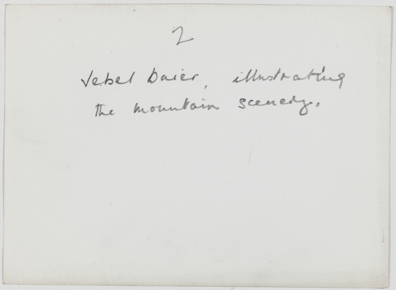 2
Jebel Daier, illustrating
the mountain scenery.